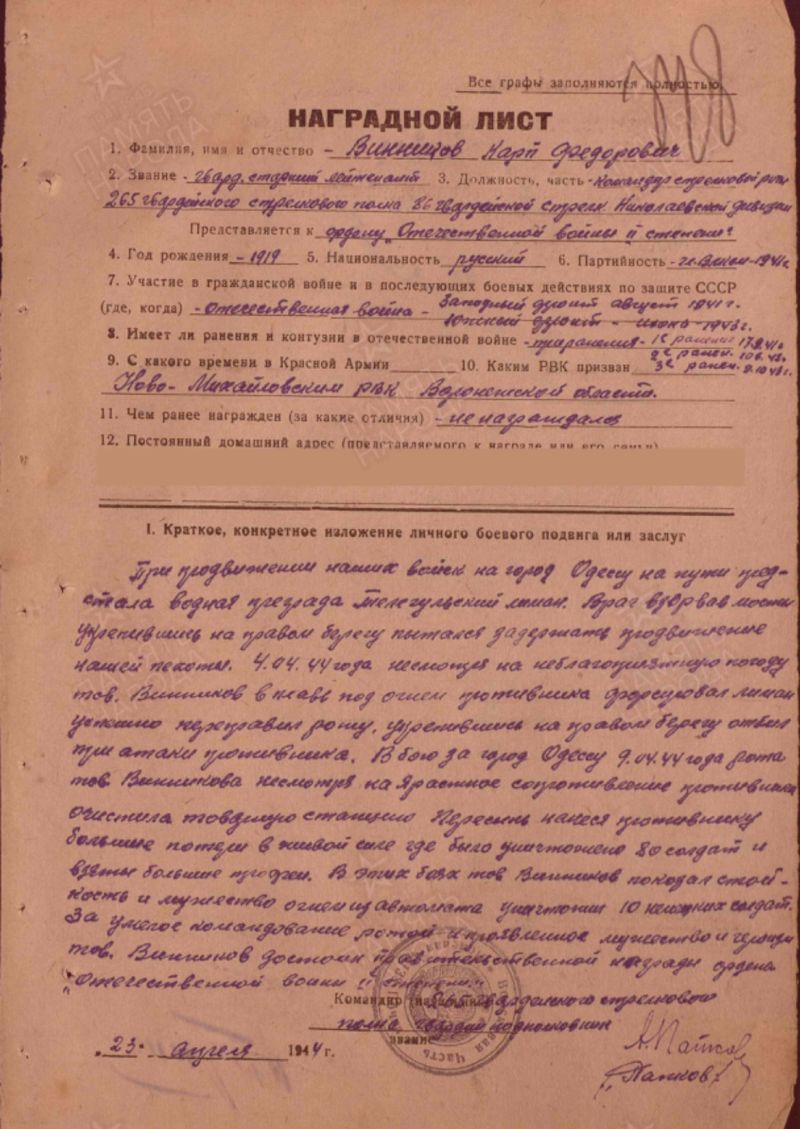 Все графы заполняются полностью
НАГРАДНОЙ ЛИСТ
1. Фамилия, имя и отчество - Винников Карп Федорович
2. Звание - гвард. старший лейтенант 3. Должность, часть - командир стрелковой роты
265 гвардейского стрелкового полка 86 гвардейской стрелк Николаевской дивизии
Представляется к ордену „Отечественной войны II степени"
4. Год рождения - 1919 5. Национальность русский 6. Партийность - 1941г
7. Участие в гражданской войне и в последующих боевых действиях по защите СССР
(где, когда) - Отечественная война - Западный фронт август 1941 г.
Южный фронт - 1943 г.
8. Имеет ли ранения и контузии в отечественной войне - три ранения - 1е ранение
2е ранен.
9. С какого времени в Красной Армии 10. Каким РВК призван 3е ранен.
Ново-Михайловским РВК Воронежской области.
11. Чем ранее награжден (за какие отличия) - не награждался
12. Постоянный домашний адрес (представляемого к награде или его семьи)
I. Краткое, конкретное изложение личного боевого подвига или заслуг
При продвижении наших войск на город Одессу на пути пред-
стала водная преграда Телегульский лиман. Враг взорвав мосты
укрепившись на правом берегу пытался задержать продвижение
нашей пехоты. 4.04.44 года несмотря на неблагоприятную погоду
тов. Винников в плавь под огнем противника форсировал лиман
успешно переправил роту, укрепившись на правом берегу отбил
три атаки противника. В бою за город Одессу 9.04.44 года рота
тов. Винникова несмотря на яростное сопротивление противника
очистила товарную станцию Пересыпь нанеся противнику
большие потери в живой силе где было уничтожено 80 солдат и
взяты большие трофеи. В этих боях тов Винников показал стой-
кость и мужество огнем из автомата уничтожил 10 немецких солдат.
За умелое командование ротой и проявленное мужество и героизм
тов. Винников достоин правительственной награды ордена
„Отечественной войны II степени"
Командир гвардейского стрелкового
полка гвардии подполковник
звание
„23" апреля 1944 г.